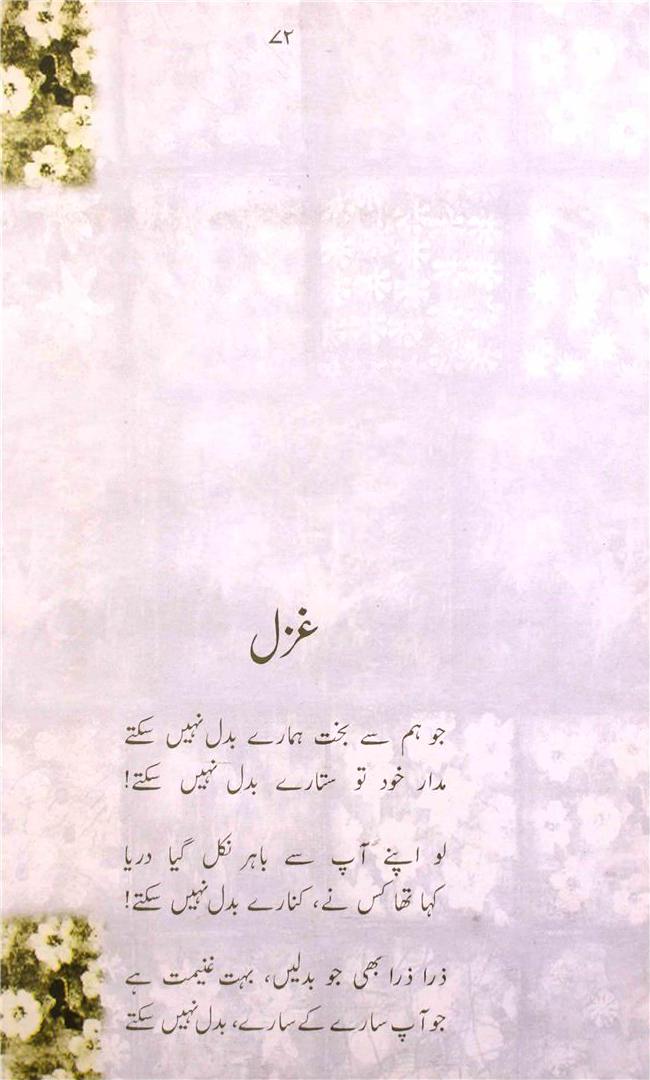 ۷۲
غزل
جو ہم سے بخت ہمارے بدل نہیں سکتے
مدار خود تو ستارے بدل نہیں سکتے!
لو اپنے آپ سے باہر نکل گیا دریا
کہا تھا کس نے، کنارے بدل نہیں سکتے!
ذرا ذرا بھی جو بدلیں، بہت غنیمت ہے
جو آپ سارے کے سارے، بدل نہیں سکتے